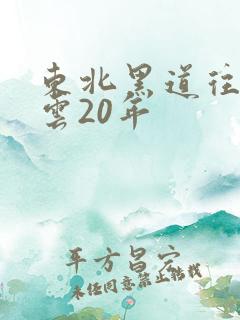 東北黑道往
雲20年
平方昌宍
未经同意禁止转载